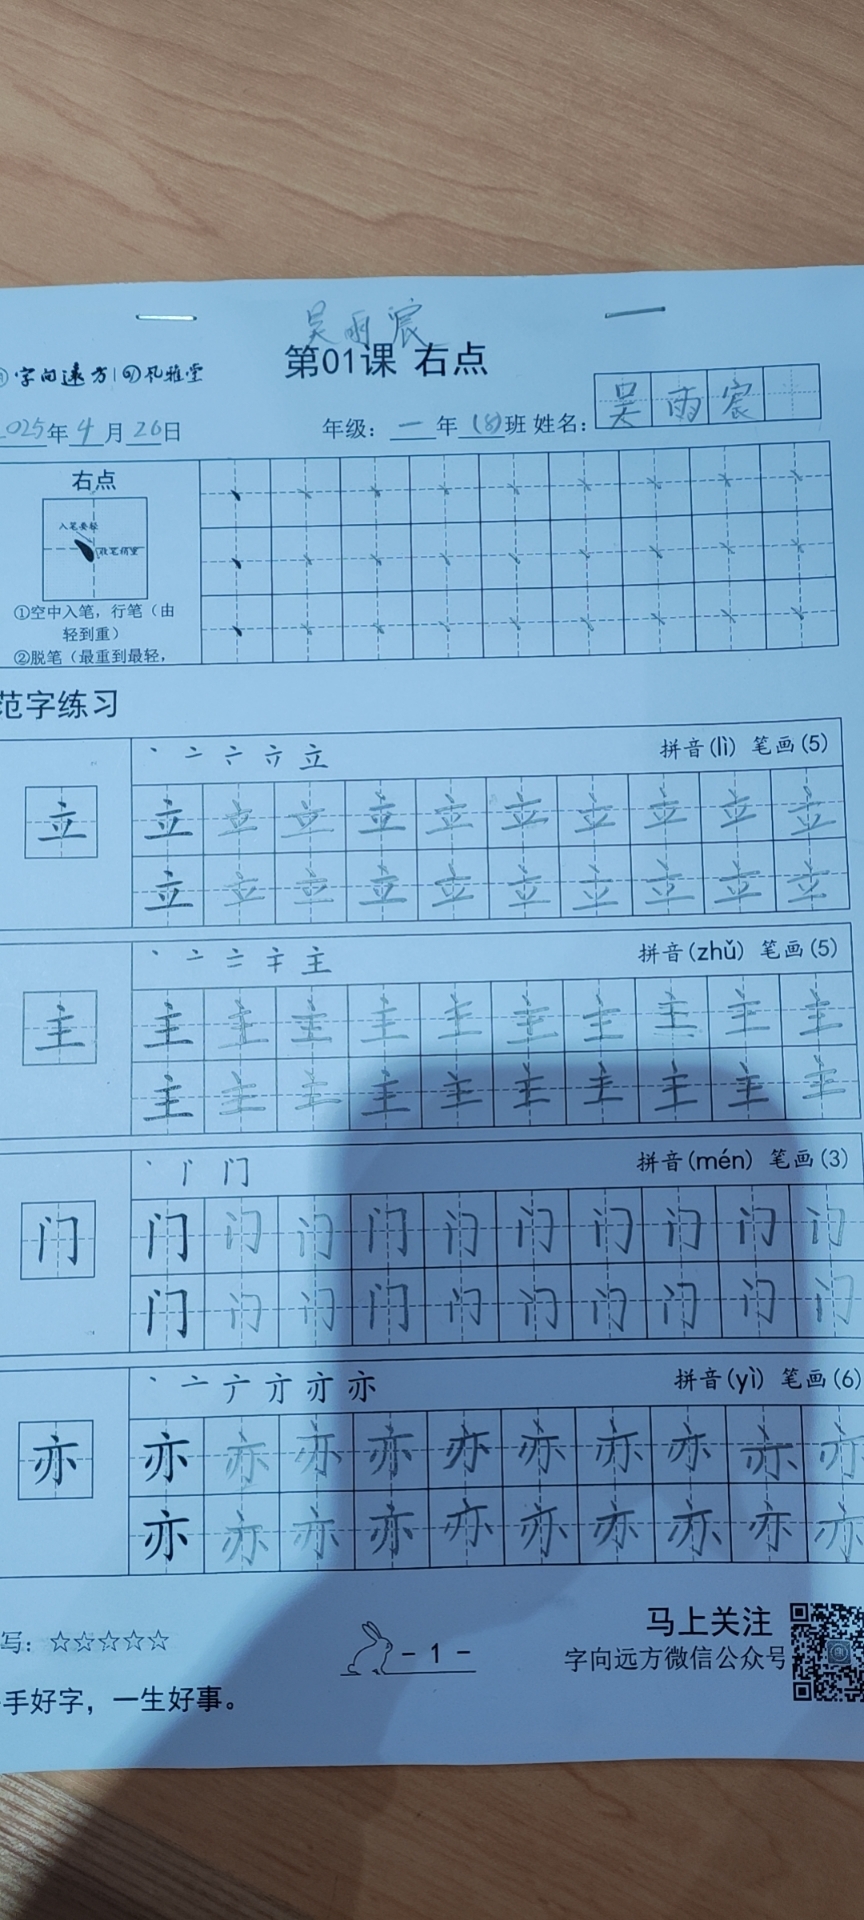 吴雨宸
字向远方 | 风雅堂
第01课 右点
2025年4月26日 年级：一年(8)班 姓名：吴雨宸
右点
入笔要轻
收笔稍重
①空中入笔，行笔（由
轻到重）
②脱笔（最重到最轻，
范字练习
丶 亠 立 拼音(lì) 笔画(5)
立 立 立 立 立 立 立 立 立 立 立
立 立 立 立 立 立 立 立 立 立
丶 亠 主 拼音(zhǔ) 笔画(5)
主 主 主 主 主 主 主 主 主 主 主
主 主 主 主 主 主 主 主 主 主
丶 门 拼音(mén) 笔画(3)
门 门 门 门 门 门 门 门 门 门 门
门 门 门 门 门 门 门 门 门 门
丶 亠 亦 拼音(yì) 笔画(6)
亦 亦 亦 亦 亦 亦 亦 亦 亦 亦 亦
亦 亦 亦 亦 亦 亦 亦 亦 亦 亦
写：☆☆☆☆☆ - 1 - 马上关注
字向远方微信公众号
手好字，一生好事。